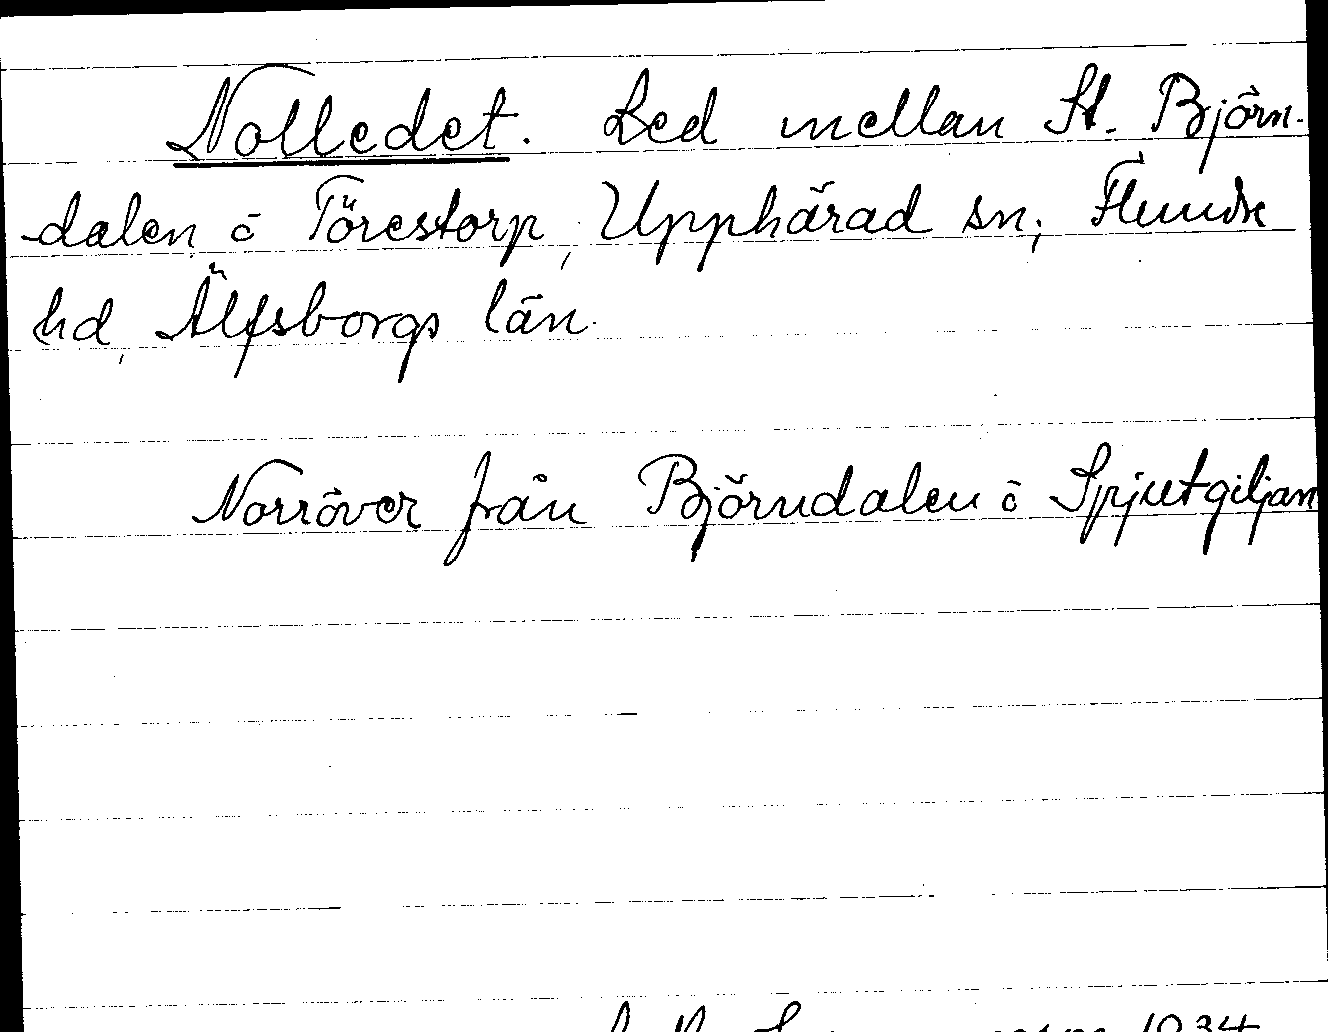 Nolledet. Led mellan St. Björn-
dalen o Törestorp, Upphärad sn, Flundre
hd, Älfsborgs län.
Norröver från Björndalen o Spjutgiljan
1934